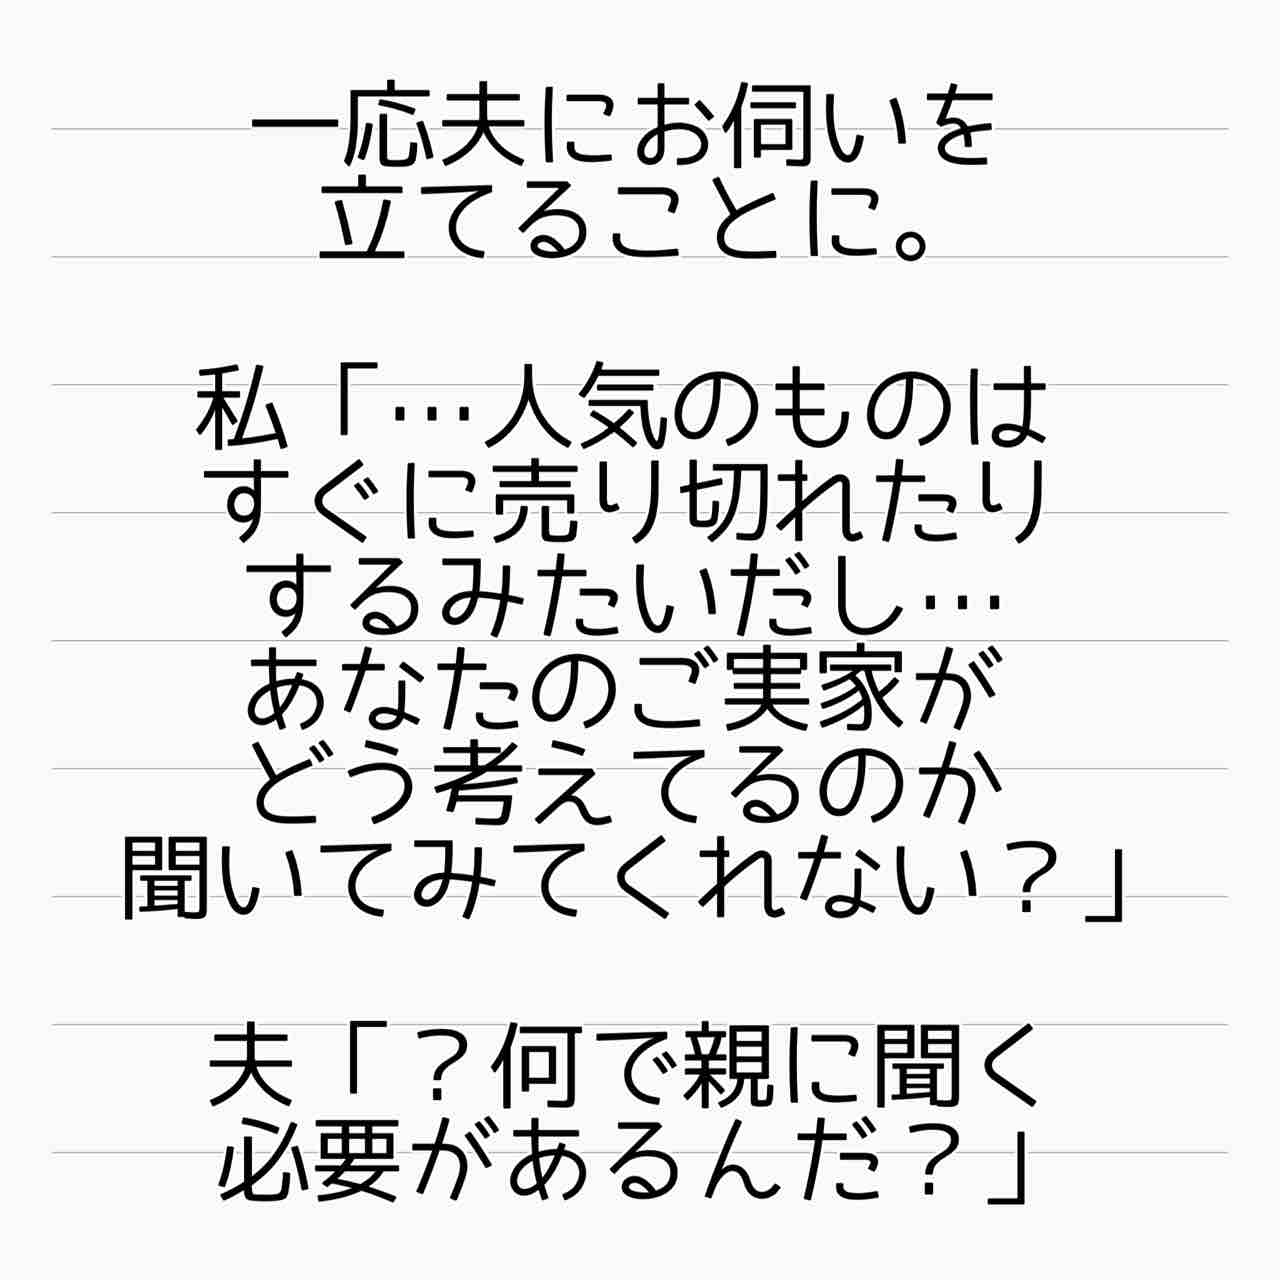 一応夫にお伺いを
立てることに。
私「…人気のものは
すぐに売り切れたり
するみたいだし…
あなたのご実家が
どう考えてるのか
聞いてみてくれない？」
夫「？何で親に聞く
必要があるんだ？」